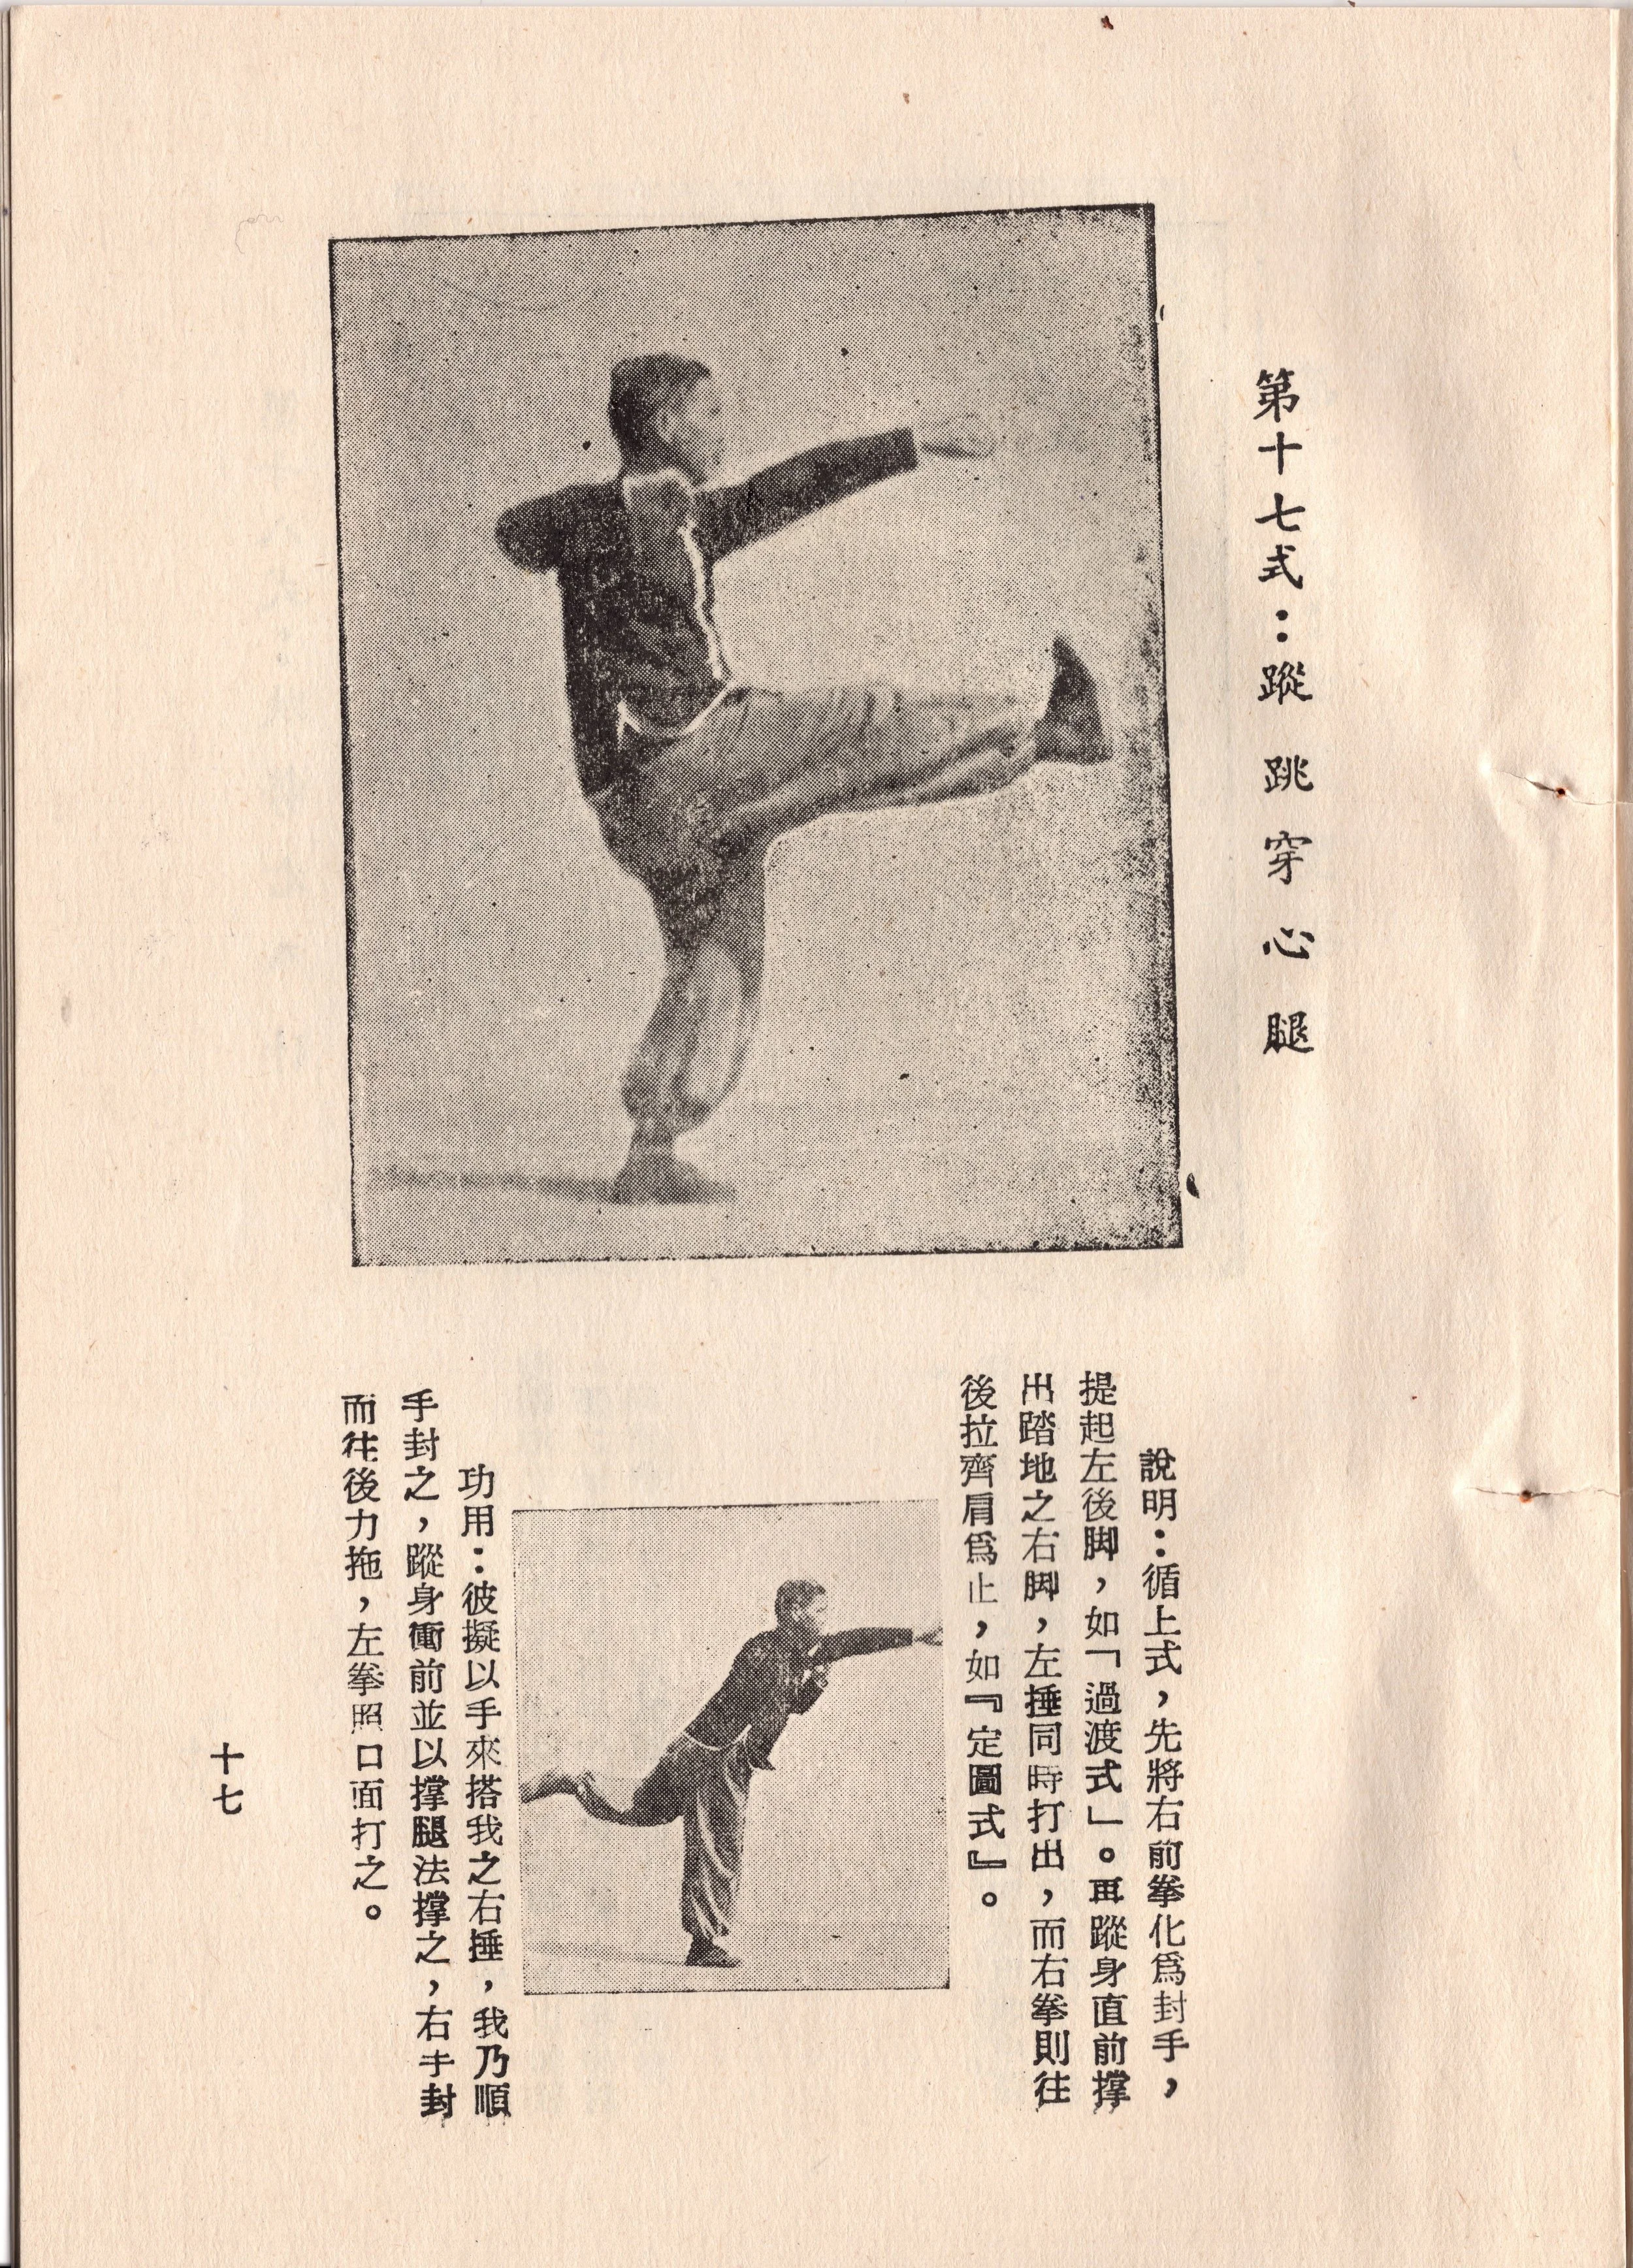 第十七式：蹤跳穿心腿
說明：循上式，先將右前拳化爲封手，
提起左後脚，如「過渡式」。再蹤身直前撑
出踏地之右脚，左捶同時打出，而右拳則往
後拉齊肩爲止，如『定圖式』。
功用：彼擬以手來搭我之右捶，我乃順
手封之，蹤身衝前並以撑腿法撑之，右手封
而往後力拖，左拳照口面打之。
十七